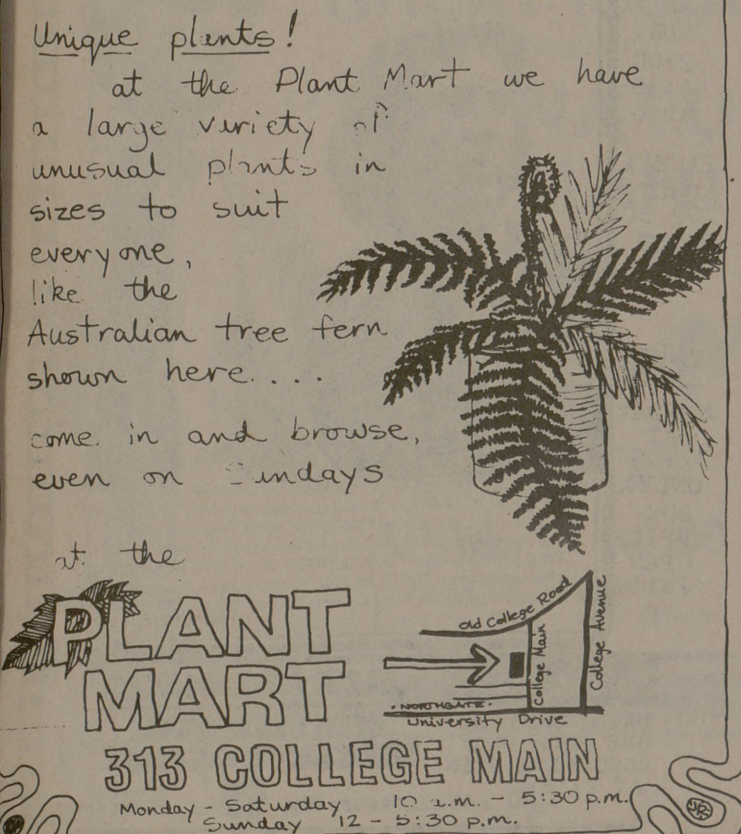 Unique plants!
at the Plant Mart we have
a large variety of
unusual plants in
sizes to suit
everyone,
like the
Australian tree fern
shown here....
come in and browse,
even on Sundays
at the
PLANT
MART
Old College Road
College Main
College Avenue
NORTHGATE
University Drive
313 COLLEGE MAIN
Monday - Saturday 10 a.m. - 5:30 p.m.
Sunday 12 - 5:30 p.m.